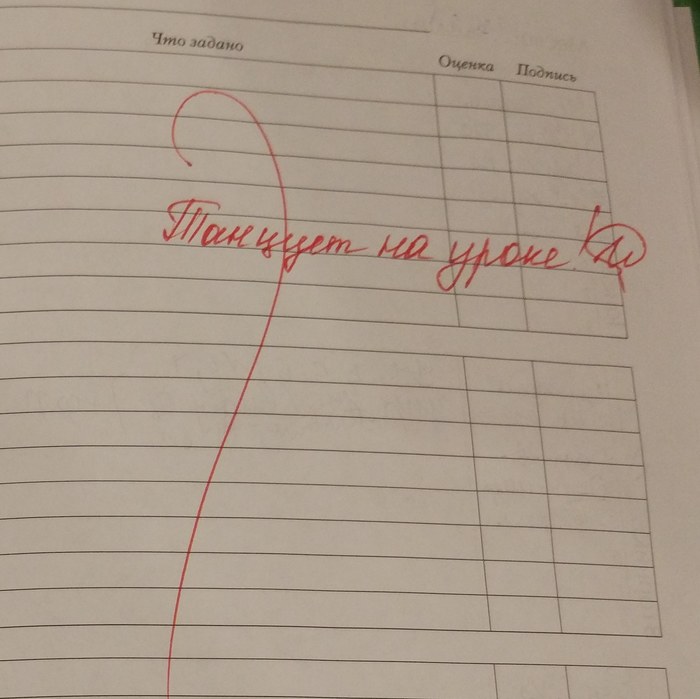 Что задано
Оценка
Подпись
Танцует на уроке!